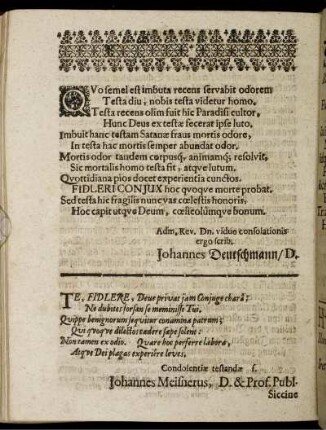 QVo semel est imbuta recens servabit odorem
Testa diu, nobis testa videtur homo.
Testa recens olim fuit hic Paradisi cultor,
Hunc Deus ex testæ fecerat ipse luto,
Imbuit hanc testam Satanæ fraus mortis odore,
In testa hac mortis semper abundat odor.
Mortis odor tandem corpusq́; animamq́; resolvit,
Sic mortalis homo testa fit, atqve lutum.
Qvottidiana pios docet experientia cunctos.
FIDLERI CONJUX hoc qvoqve morte probat.
Sed testa hic fragilis nunc vas cœlestis honoris,
Hoc capit utqve Deum, cœliteiûmqve bonum.
Adm. Rev. Dn. viduo consolationis
ergo scrib.
Johannes Deutschmann/ D.
TE, FIDLERE, Deus privat jam Conjuge charâ;
Ne dubites forsan se meminisse Tui,
Quippe benignorum seqvitur conamina patrum;
Qui qvoqve dilectos cædere sæpe solent:
Non tamen ex odio. Quare hoc perferre labora,
Atqve Dei plagas experiêre leves.
Condolentiæ testandæ f.
Johannes Meisnerus, D. & Prof. Publ.
Siccine